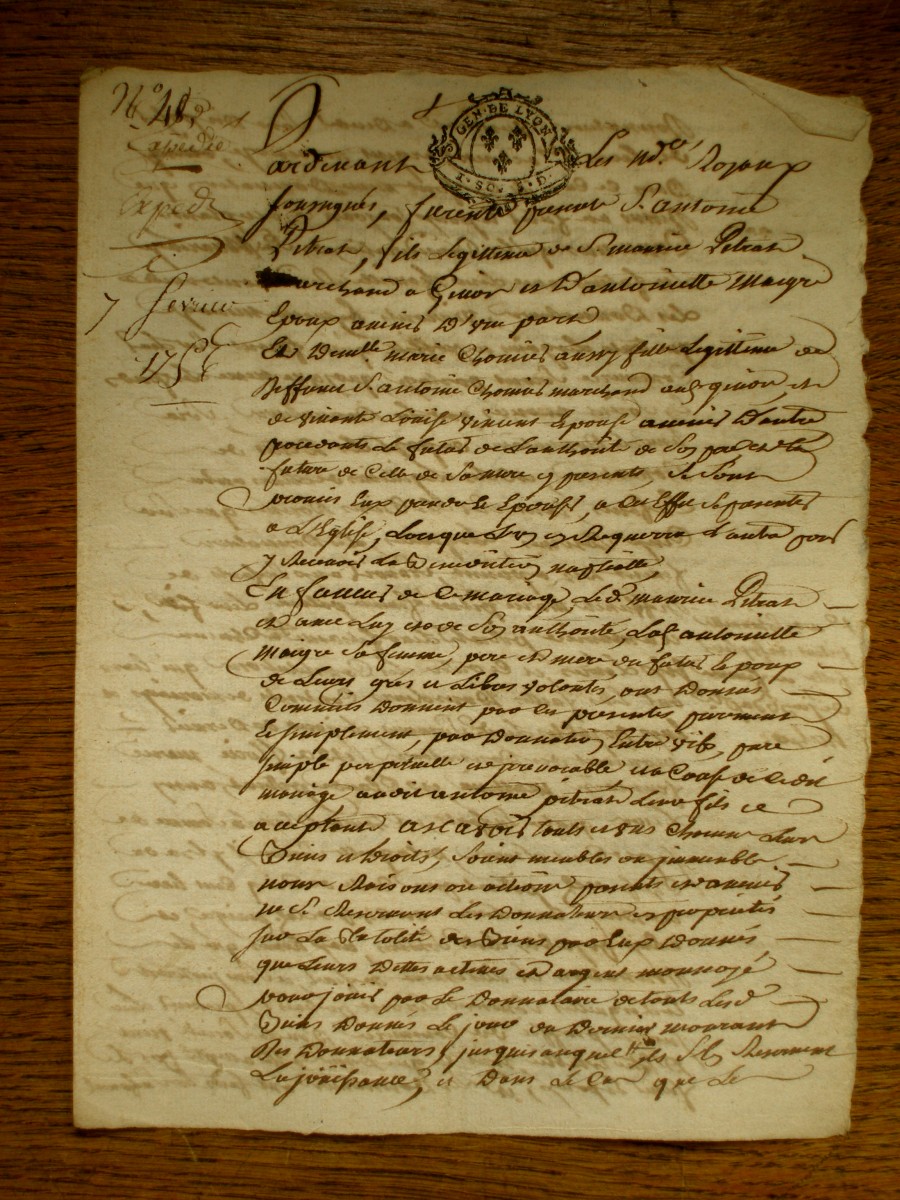 N.° 48
Expedié
Exped
7 fevrier
1756
GEN. DE LYON
Pardevant les nd.res Royaux
soussignés, furent present S. antoine
Pitrat, fils Legittime de S. maurice Pitrat
marchand a Givor et D'antoinette Maigre
Epoux avenir D'une part
Et Demlle marie Chomier aussy fille Legittime de
Deffunt S. antoine Chomier marchand aud. givor, et
de vivante Louise vincent Epouse avenir D'autre
procedants Le futur de L'authorité de Son pere et la
future de Celle de Sa mere cy presente, Se Sont
promis Eux prendre Epouser, a Cet Effet Se presenter
a L'Eglise, Lorsque L'un en Requerra L'autre pour
y Recevoir La Benediction nuptialle
En faveur de Ce mariage, Le d. maurice Pitrat
et avec Luy et de Son authorité, Lad. antoinette
maigre Sa femme, pere et mere du futur Epoux
de Leurs grés et Libres volontés, ont Donnés
Comme ils Donnent par Ces presentes purement
Et simplement, par Donnation Entre vifs, pure
simple perpetuelle et irrevocable et a Cause de Cedit
mariage audit antoine pitrat Leur fils Ce
acceptant ascavoir touts et uns Chacuns Leurs
Biens et Droits, Soient meubles ou immeubles
noms Raisons ou actions presents et avenir
ne S. Reservant Les Donnateurs en proprietés
sur La Totalité des Biens par Eux Donnés
que Leurs Dettes actives et argent monnoyé
pour jouir par Le Donnataire de touts Lesd.
Biens Donnés Le jour du Dernier mourant
Des Donnateurs, jusques auquel ils S'En Reservent
La joüissance, et Dans Le Cas que Le